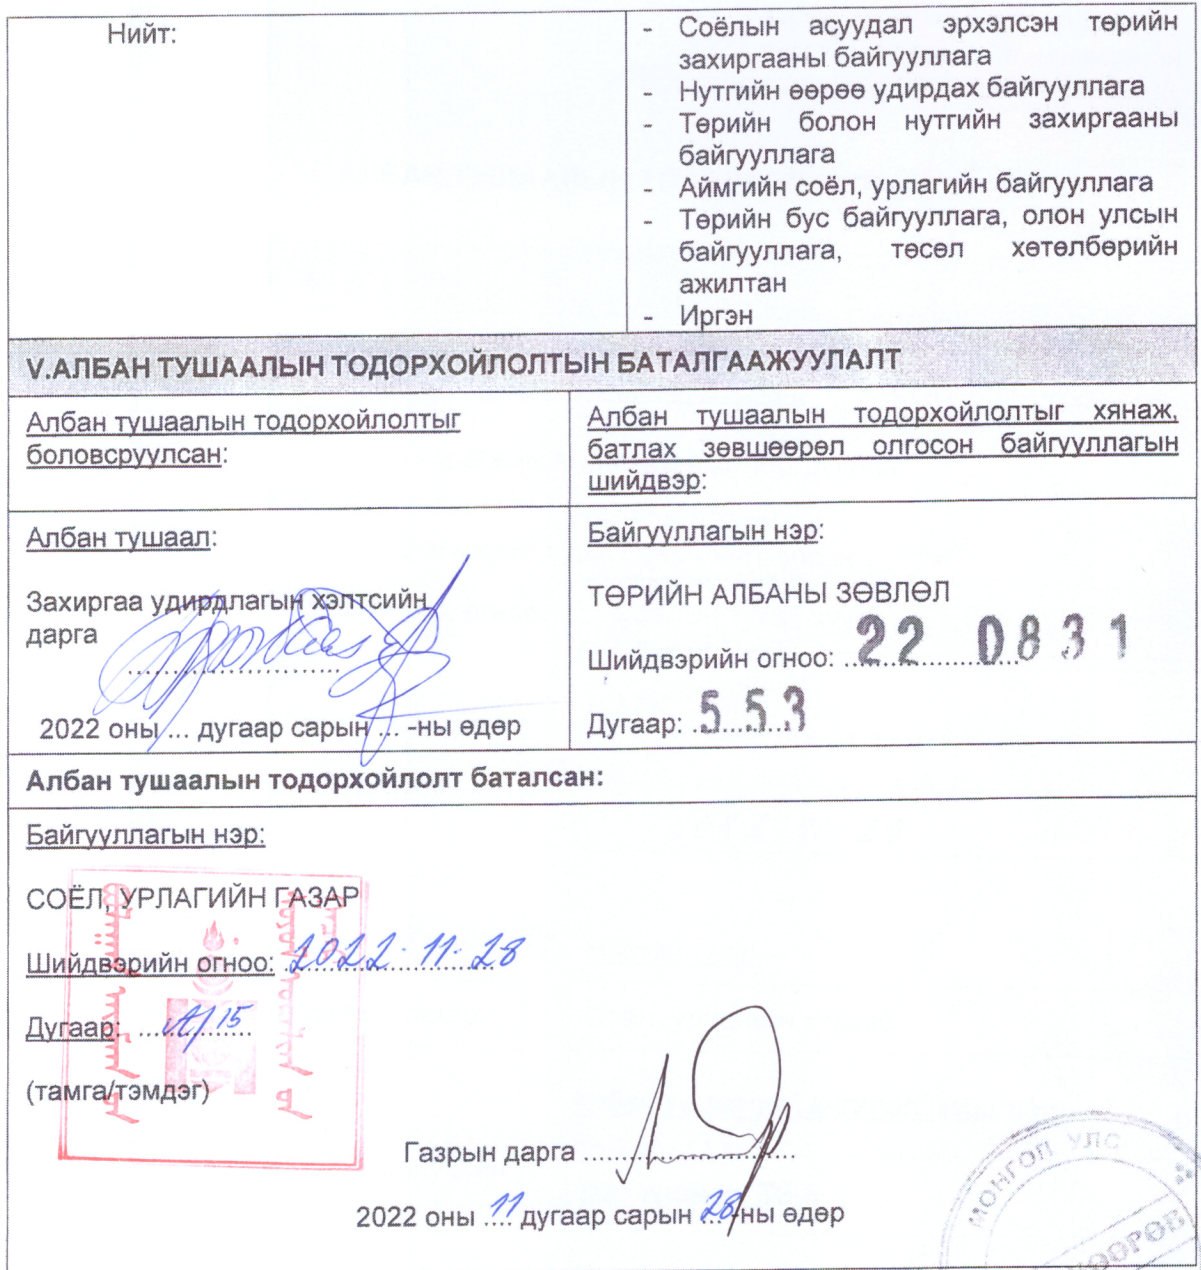 Нийт:
- Соёлын асуудал эрхэлсэн төрийн
захиргааны байгууллага
- Нутгийн өөрөө удирдах байгууллага
- Төрийн болон нутгийн захиргааны
байгууллага
- Аймгийн соёл, урлагийн байгууллага
- Төрийн бус байгууллага, олон улсын
байгууллага, төсөл хөтөлбөрийн
ажилтан
- Иргэн
V.АЛБАН ТУШААЛЫН ТОДОРХОЙЛОЛТЫН БАТАЛГААЖУУЛАЛТ
Албан тушаалын тодорхойлолтыг
боловсруулсан:
Албан тушаалын тодорхойлолтыг хянаж,
батлах зөвшөөрөл олгосон байгууллагын
шийдвэр:
Албан тушаал:
Захиргаа удирдлагын хэлтсийн
дарга
.........................
2022 оны ... дугаар сарын ... -ны өдөр
Байгууллагын нэр:
ТӨРИЙН АЛБАНЫ ЗӨВЛӨЛ
Шийдвэрийн огноо: 22 0831
Дугаар: 553
Албан тушаалын тодорхойлолт баталсан:
Байгууллагын нэр:
СОЁЛ, УРЛАГИЙН ГАЗАР
Шийдвэрийн огноо: 2022-11-28
Дугаар: А/15
(тамга/тэмдэг)
Газрын дарга .........................
2022 оны 11 дугаар сарын 28-ны өдөр
МОНГОЛ УЛС